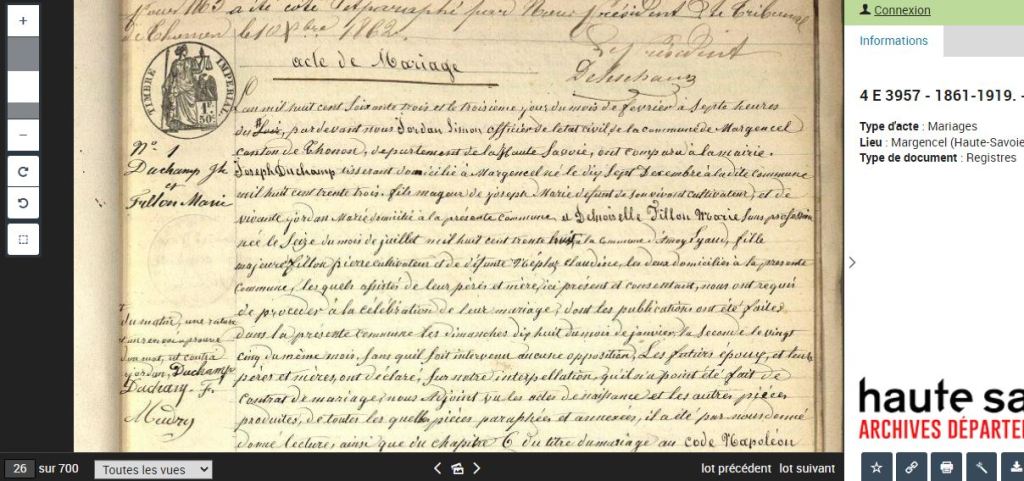 Janvier 1863 a été coté et paraphé par Nous Président du Tribunal
de Thonon le 10 Xbre 1862.
Le président
Deleschaux
TIMBRE IMPERIAL
1F. 50c.
acte de Mariage
L'an mil huit cent Soixante trois et le troisième jour du mois de fevrier à Septe heures
du Soir, pardevant nous Jordan Simon officier de letat civil de la commune de Margencel
canton de Thonon, département de la Haute Savoie, ont comparu à la mairie.
Joseph Duchamp tisserant domicilié à Margencel né le dix Sept Decembre à ladite commune
mil huit cent trente trois. fils majeur de joseph Marie defunt de son vivant cultivateur, et de
vivante jordan Marie domicilié à la présente commune, et Demoiselle Fillon Marie Sans profession
née le Seize du mois de juillet mil huit cent trente huit à la commune d'Amoy Lyaud, fille
majeure fillon pierre cultivateur et de défunte Néplaz Claudine, les deux domiciliés à la presente
commune, les quels assistés de leur pérés et mére, ici present et consentant, nous ont requis
de proceder à la célébration de leur mariage, dont les publications ont été faites
Dans la présente commune les dimanches dix huit du mois de janvier, la seconde le vingt
cinq du même mois, Sans quil soit intervenu aucune opposition, Les futurs époux, et leurs
pérés et méres, ont déclaré, Sur notre interpellation, qu'il n'a point été fait de
Contrat de mariage, nous Adjoint vu les actes de naissance et les autres piéces
produites, de toutes les quelles piéces paraphées et annexées, il a été par nous donné
donné lecture, ainsi que du chapitre 6 du titre du mariage au code Napoléon
N° 1
Duchamp Jh
et
Fillon Marie
du matin, une rature
mot, et contra
jordan, Duchamp
Ducharg - F.
Mudry
26 sur 700
Toutes les vues
lot précédent lot suivant
Connexion
Informations
4 E 3957 - 1861-1919. -
Type d'acte : Mariages
Lieu : Margencel (Haute-Savoie
Type de document : Registres
haute sa
ARCHIVES DÉPARTE